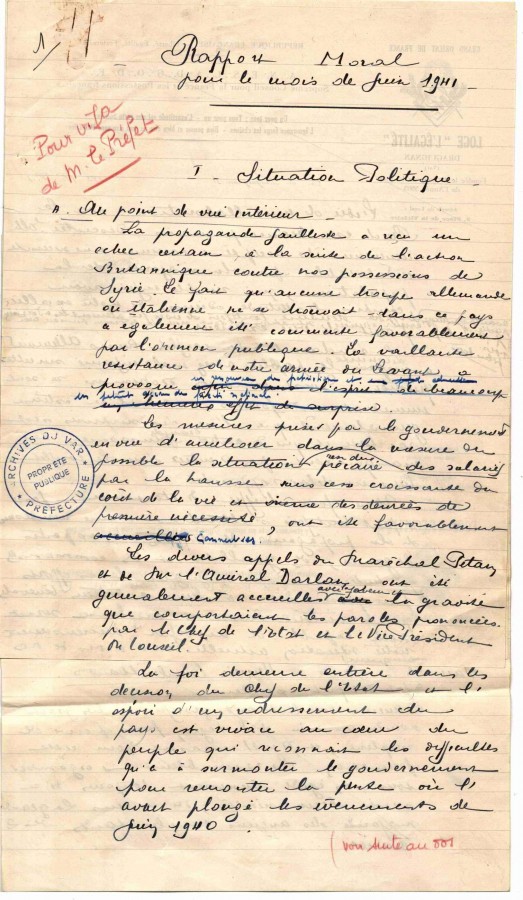 1/
Rapport Moral
pour le mois de Juin 1941
LOGE "L'ÉGALITÉ"
Pour visa
de M. le Préfet
I - Situation Politique
A. Au point de vue intérieur
La propagande gaulliste a reçu un
échec certain à la suite de l'action
Britannique contre nos possessions de
Syrie. Le fait qu'aucune troupe allemande
ou italienne ne se trouvait dans ce pays
a également été commenté favorablement
par l'opinion publique. La vaillante
résistance de notre armée du Levant a
provoqué dans l'esprit de beaucoup
un patriotisme et
national.
effet de surprise.
Les mesures prises par le gouvernement
en vue d'améliorer dans la mesure du
possible la situation rendue précaire des salariés
par la hausse sans cesse croissante du
coût de la vie et même des denrées de
première nécessité, ont été favorablement
accueillies commentées.
Les divers appels du Maréchal Pétain
et de l'Amiral Darlan ont été
généralement accueillis avec la gravité
que comportaient les paroles prononcées
par le Chef de l'Etat et le Vice Président
du Conseil.
La foi demeure entière dans les
décisions du Chef de l'Etat et l'
espoir d'un redressement du
pays est vivace au cœur du
peuple qui reconnait les difficultés
qu'a à surmonter le gouvernement
pour remonter la pente où l'
avait plongé les évènements de
Juin 1940
(voir suite au
ARCHIVES DU VAR
PROPRIÉTÉ
PUBLIQUE
PRÉFECTURE